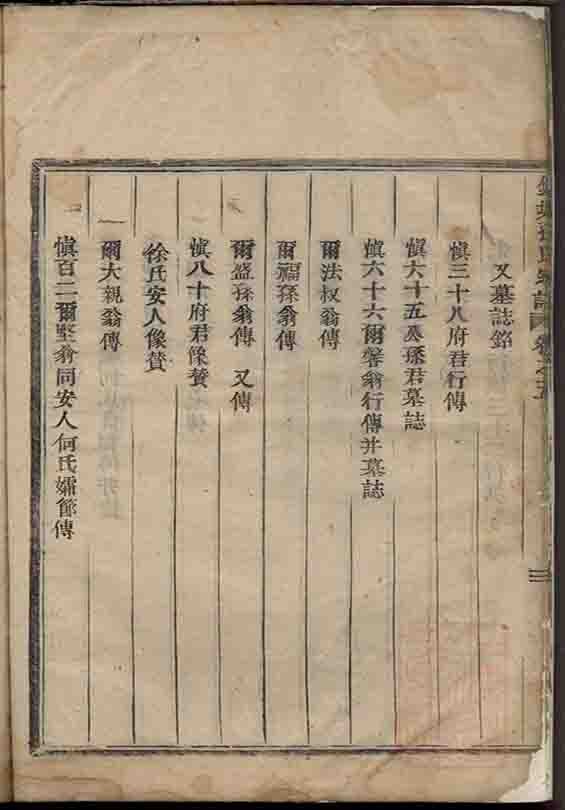 又墓誌銘
愼三十八府君行傳
愼六十五 孫君墓誌
愼六十六爾馨翁行傳并墓誌
爾法叔翁傳
爾福孫翁傳
爾盛孫翁傳 又傳
愼八十府君像贊
徐氏安人像贊
爾大親翁傳
愼百二爾堅翁同安人何氏孀節傳
氏宗譜 卷之五